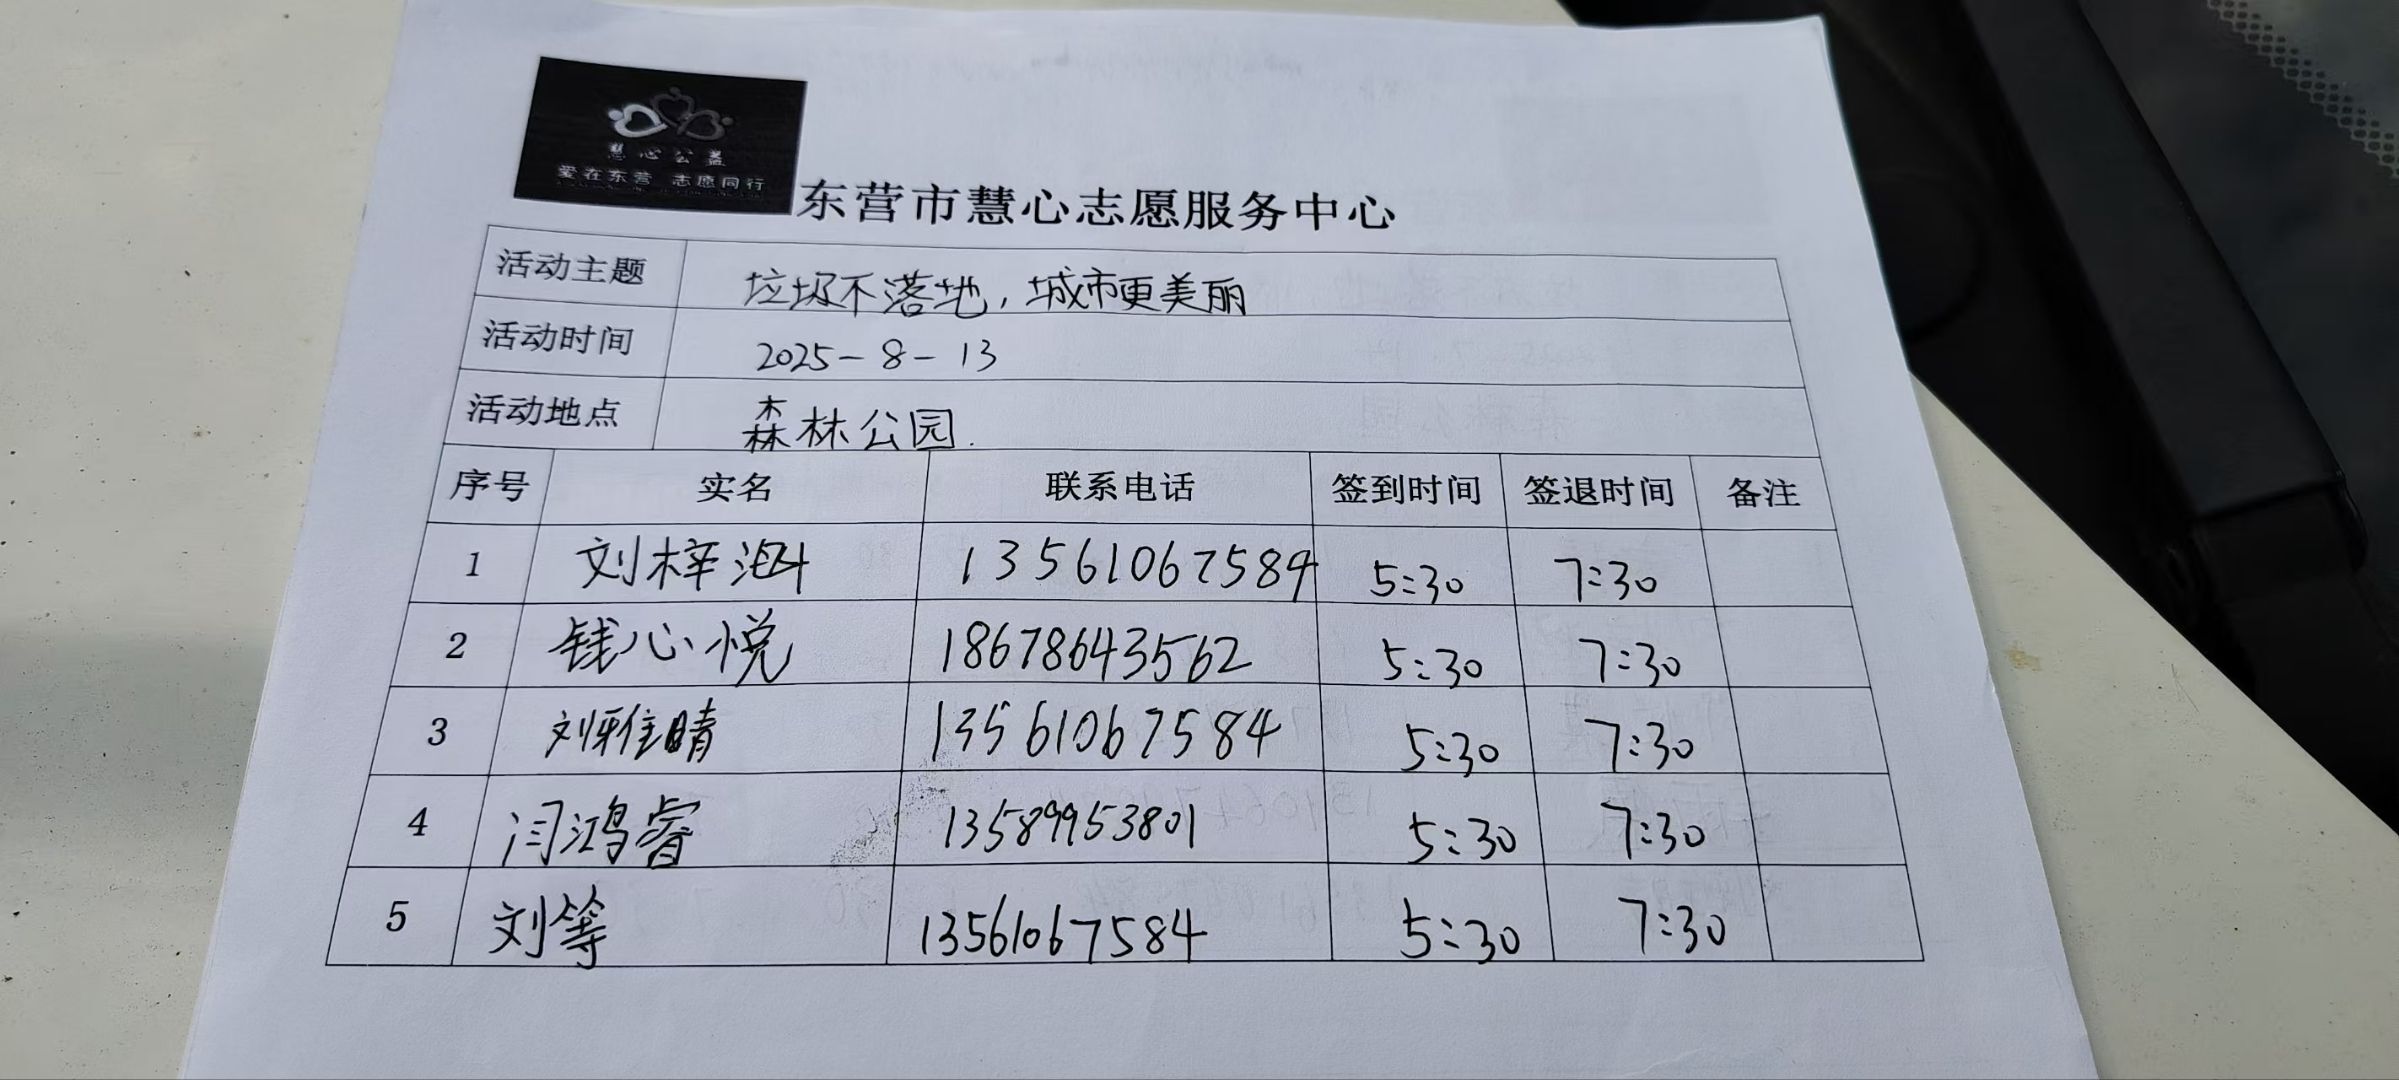 慧心公益
爱在东营 志愿同行
东营市慧心志愿服务中心
活动主题 垃圾不落地，城市更美丽
活动时间 2025-8-13
活动地点 森林公园.
序号 实名 联系电话 签到时间 签退时间 备注
1 刘梓 13561067584 5:30 7:30
2 钱心悦 18678643562 5:30 7:30
3 刘雅晴 13561067584 5:30 7:30
4 闫鸿睿 13589953801 5:30 7:30
5 刘等 13561067584 5:30 7:30